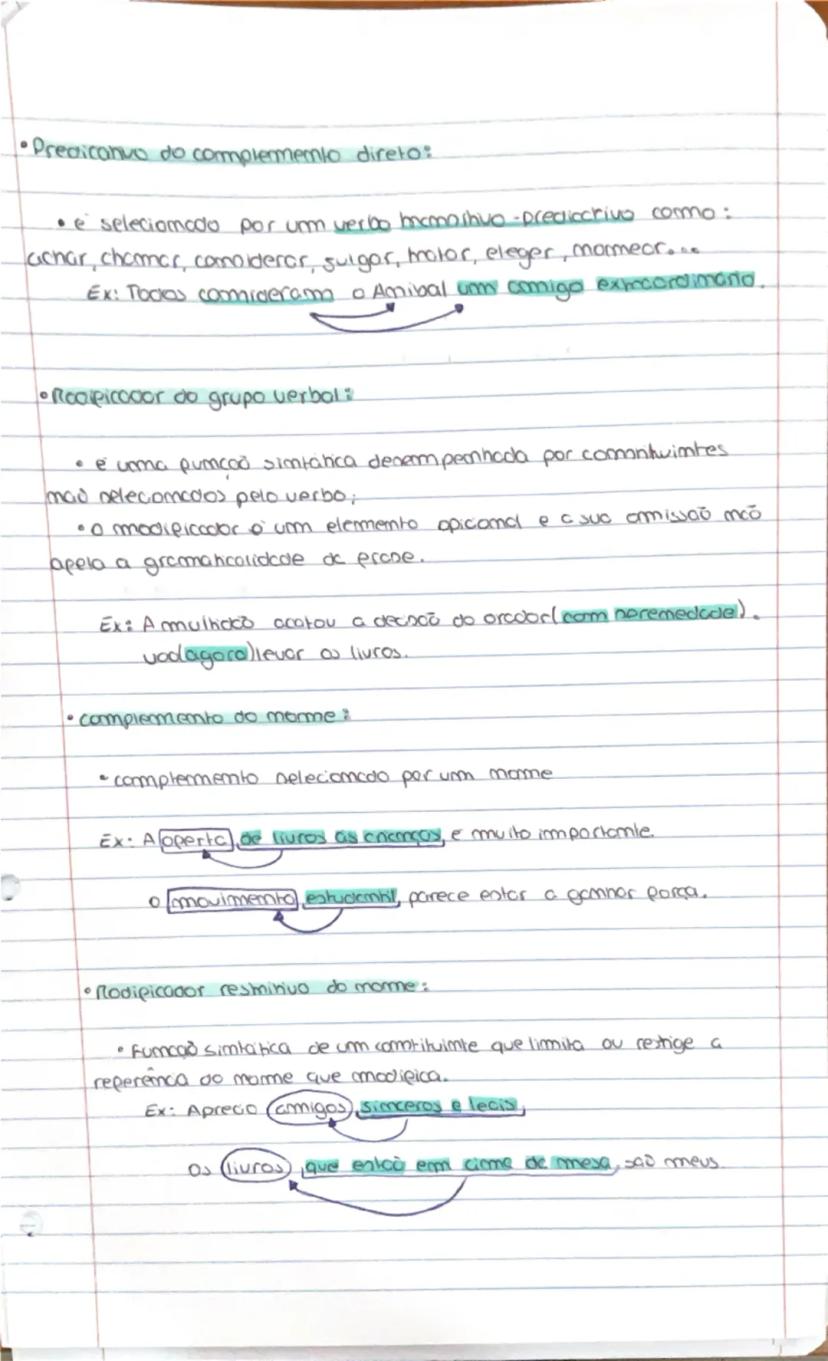 • Predicativo do complemento direto:
• é selecionado por um verbo transitivo-predicativo como:
achar, chamar, considerar, julgar, tratar, eleger, nomear...
Ex: Todos consideram o Anibal um amigo extraordinário.
• Modificador do grupo verbal:
• é uma função sintática desempenhada por constituintes
não selecionados pelo verbo;
• o modificador é um elemento opcional e a sua omissão não
afeta a gramaticalidade da frase.
Ex: A multidão acatou a decisão do orador (com serenidade).
vou (agora) levar os livros.
• complemento do nome:
• complemento selecionado por um nome
Ex: A oferta, de livros às crianças, é muito importante.
O movimento, estudantil, parece estar a ganhar força.
• Modificador restritivo do nome:
• Função sintática de um constituinte que limita ou restrige a
referência do nome que modifica.
Ex: Aprecio amigos, sinceros e leais,
Os livros, que estão em cima da mesa, são meus